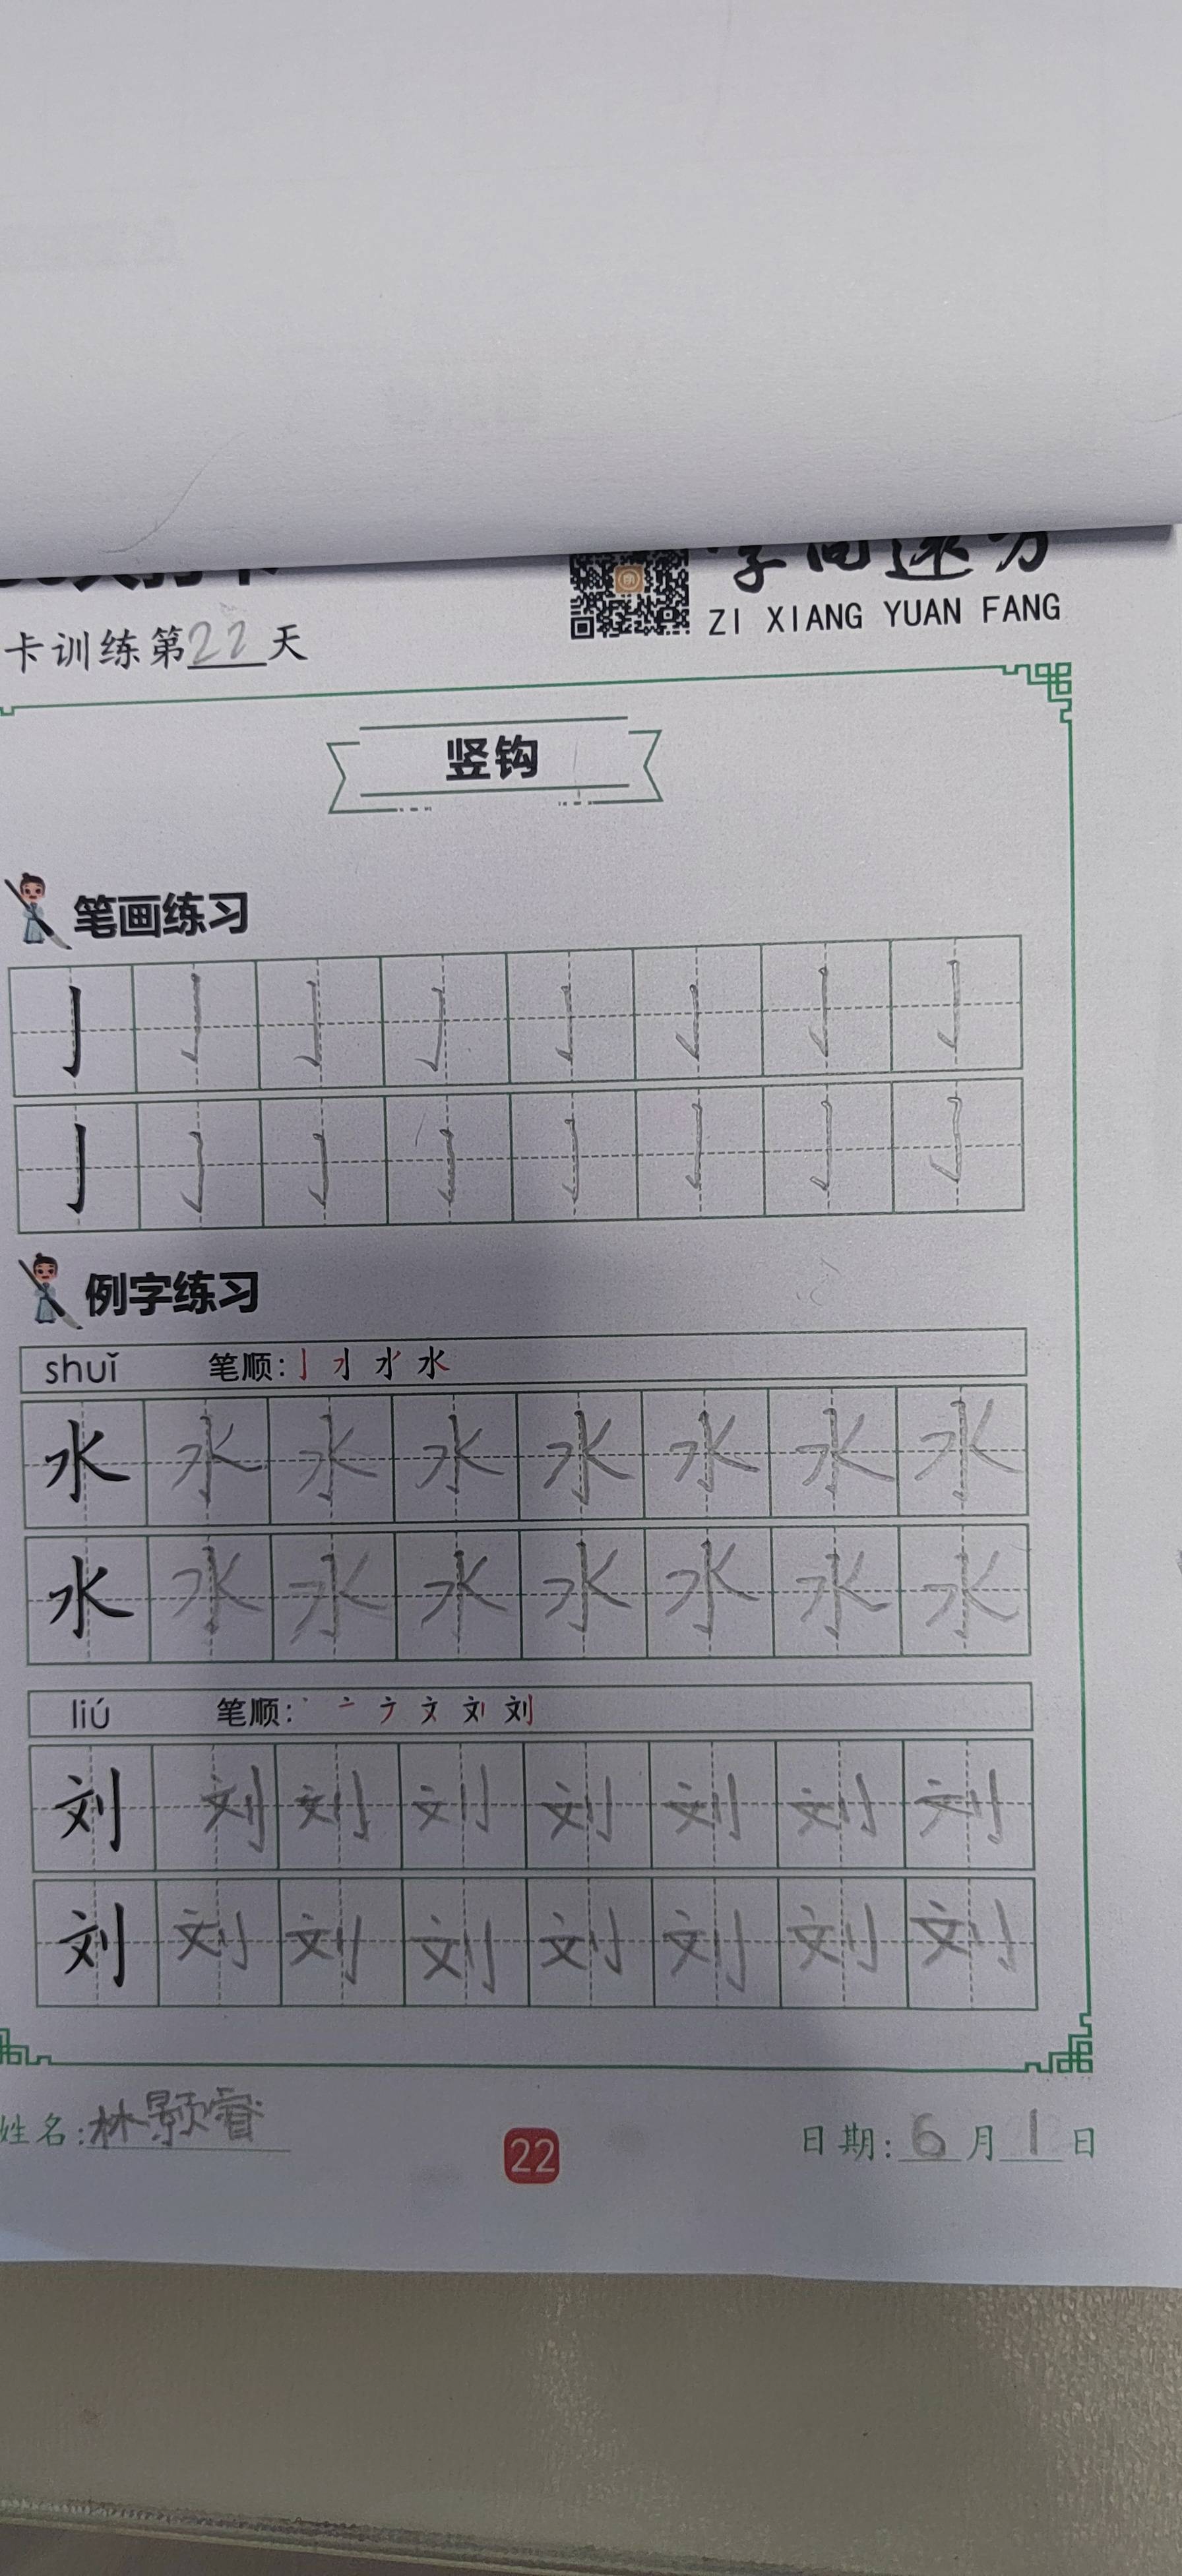 ZI XIANG YUAN FANG
卡训练第22天
竖钩
笔画练习
亅 亅 亅 亅 亅 亅 亅 亅
亅 亅 亅 亅 亅 亅 亅 亅
例字练习
shuǐ 笔顺:
水 水 水 水 水 水 水 水
水 水 水 水 水 水 水 水
liú 笔顺:
刘 刘 刘 刘 刘 刘 刘 刘
刘 刘 刘 刘 刘 刘 刘 刘
姓名:林颢睿
22
日期:6月1日